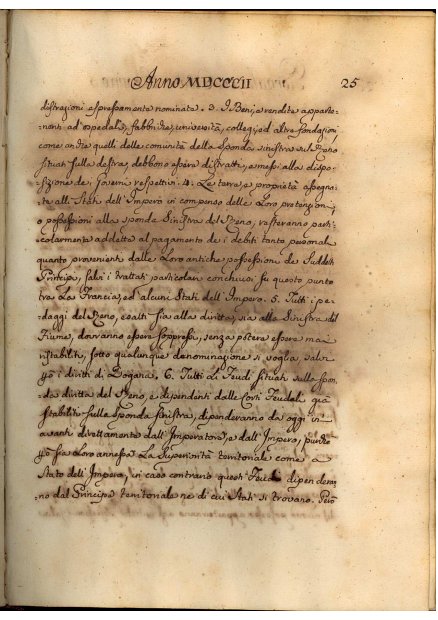 Anno MDCCCII 25
distrazioni espressamente nominate. 3. I Beni, e rendite apparte-
-nenti ad ospedali, fabbriche, università, collegi, ed altre fondazioni
come anche quelli delle comunità della sponda sinistra sul Reno
situati sulla destra, debbono essere distratti, e messi alla dispo-
-sizione de' Governi respettivi. 4. Le terre, e proprietà assegna-
-te alli Stati dell'Impero in compenso delle Loro pretenzioni,
o possessioni alla sponda Sinistra del Reno, resteranno parti-
-colarmente addette al pagamento de i debiti tanto personali
quanto provenienti dalle Loro antiche possessioni de Sudditi
Principi, salvi i trattati particolari conchiusi su questo punto
tra La Francia, ed alcuni Stati dell'Impero. 5. Tutti i pe-
-daggi del Reno, esatti sia alla diritta, sia alla Sinistra del
Fiume, dovranno essere soppressi, senza potere essere mai
ristabiliti, sotto qualunque denominazione si voglia, salvi
però i diritti di Dogana. 6. Tutti Li Feudi situati sulla spon-
da diritta del Reno, e dipendenti dalle Corti Feudali già
stabilite sulla Sponda Sinistra, dipenderanno da oggi in
avanti direttamente dall'Imperatore, e dall'Impero, purchè
però sia Loro annessa La Superiorità territoriale come
Stato dell'Impero, in caso contrario questi Feudi dipenderan-
no dal Principe territoriale ne di cui Stati si trovano. Però